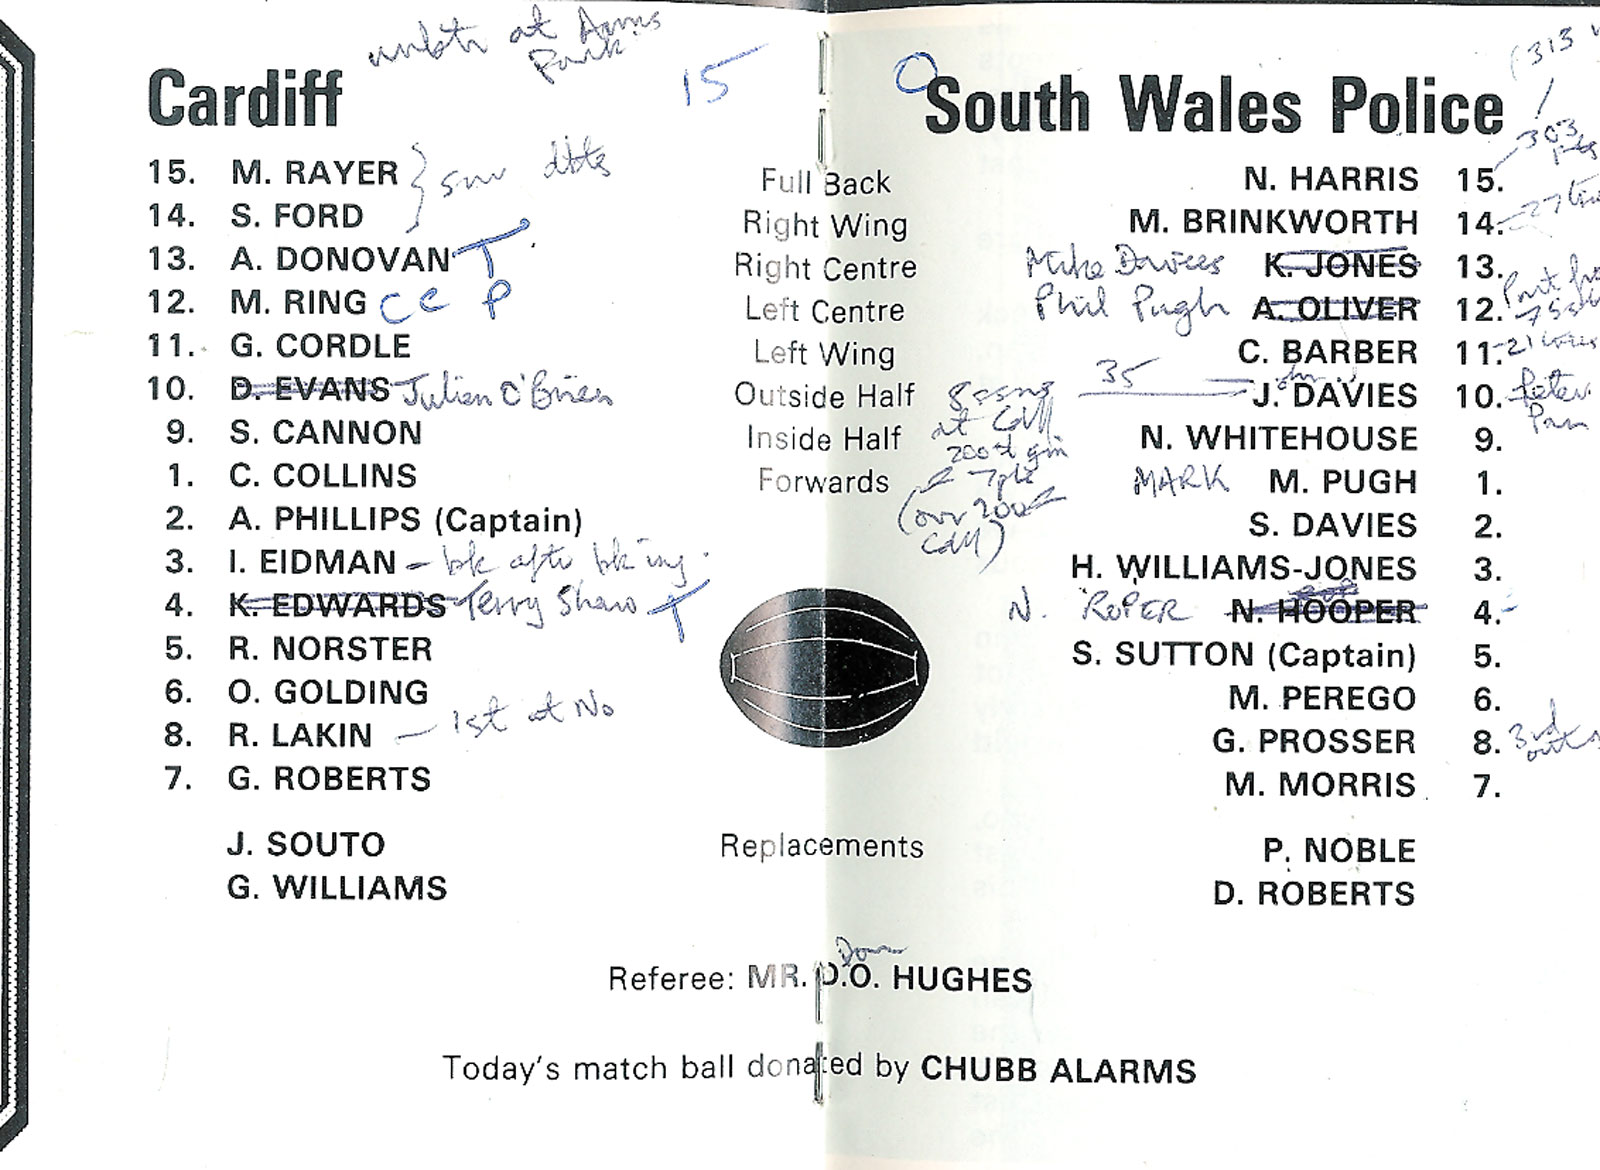 at Arms
Park
15
O
(313
Cardiff
South Wales Police
303
15. M. RAYER
Full Back
N. HARRIS 15.
14. S. FORD
Right Wing
M. BRINKWORTH 14. 27
13. A. DONOVAN T
Right Centre
Mike Davies K. JONES 13.
12. M. RING C C P
Left Centre
Phil Pugh A. OLIVER 12.
11. G. CORDLE
Left Wing
C. BARBER 11. 21
10. D. EVANS Julien O'Brien
Outside Half
35 J. DAVIES 10. Peter
Pan
9. S. CANNON
Inside Half
at
N. WHITEHOUSE 9.
1. C. COLLINS
Forwards
MARK M. PUGH 1.
(over 200
2. A. PHILLIPS (Captain)
S. DAVIES 2.
3. I. EIDMAN - bk after bk ing.
H. WILLIAMS-JONES 3.
4. K. EDWARDS Terry Shaw T
N. ROPER N. HOOPER 4.
5. R. NORSTER
S. SUTTON (Captain) 5.
6. O. GOLDING
M. PEREGO 6.
8. R. LAKIN - 1st at No
G. PROSSER 8. 3rd
7. G. ROBERTS
M. MORRIS 7.
J. SOUTO
Replacements
P. NOBLE
G. WILLIAMS
D. ROBERTS
Referee: MR. D.O. HUGHES
Today's match ball donated by CHUBB ALARMS